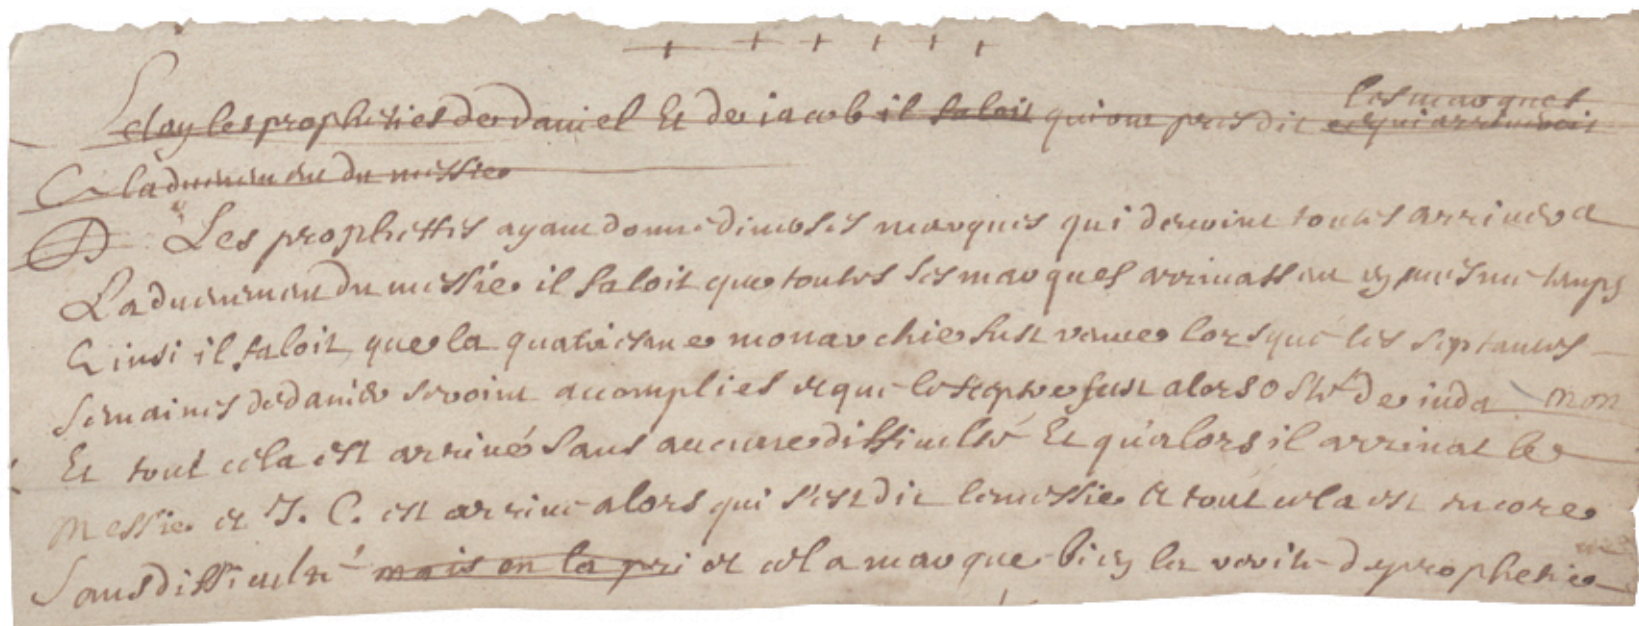 + + + + + +
les marques
et ay les propheties de daniel Et de iacob il faloit qui ont predit ce qui arriveroit
a ladvenem en du messie
Les prophettes ayant donné diverses marques qui devoint toutes arriver a
Ladvenemen du messie il faloit que toutes ses marques arrivassent en mesme temps
Ainsi il faloit que la quatriesme monarchie fust venue lorsque les septantes
semaines de daniel seroint accomplies et que le sceptre fust alors osté de iuda non
Et tout cela est arrivé sans aucune difficulté Et qu'alors il arrivat le
Messie et J. C. est arrivé alors qui s'est dit le messie et tout cela est encore
sans difficulté mais on la pri et cela marque bien la verité d prophetie